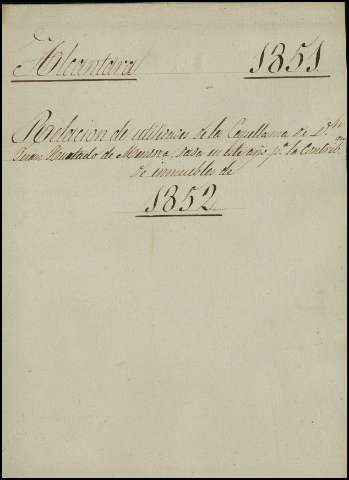 Alcantara 1851
Relacion de utilidades de la Capellania de Dn
Juan Hurtado de Mendoza, dada en este año pa la Contribon
de inmuebles de
1852